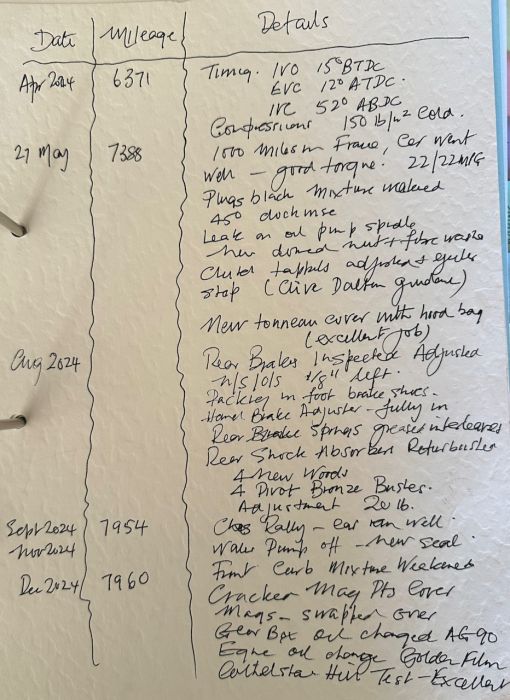 Date Mileage Details
Apr 2024 6371 Timing. IVO 15° BTDC
EVC 12° ATDC.
IVC 52° ABDC
Compressions 150 lb/in² Cold.
27 May 7388 1000 miles in France, Car went
well - good torque. 22/22 MPG
Plugs black Mixture
45° clockwise
Leak on oil pump spindle
- new domed nut + fibre
Clutch adjusted +
stop (Clive Dalton)
New tonneau cover with hood bag
(excellent job)
Aug 2024 Rear Brakes Inspected Adjusted
N/S/O/S 1/8" left.
Packing in foot brake shoes.
Hand Brake Adjuster - fully in
Rear Springs greased interleaves
Rear Shock Absorbers Refurbished
4 New
4 Pivot Bronze
Adjustment 20 lb.
Sept 2024 7954 Rally - car ran well.
Nov 2024 Water Pump off - new seal.
Front Carb Mixture Weakened
Dec 2024 7960 Mag Pts Cover
Mags - swapped over
Gear Box oil changed AG90
oil change Golden Film
Hill Test - Excellent